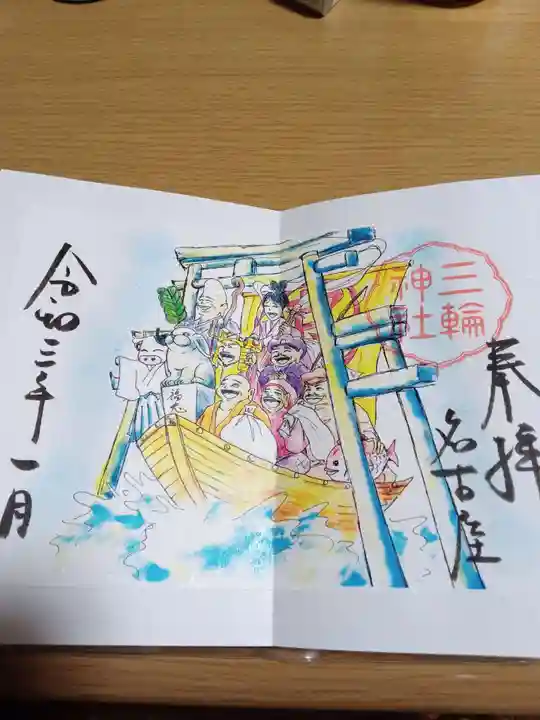 奉拝
名古屋
三輪
神社
福兎
令和三年一月